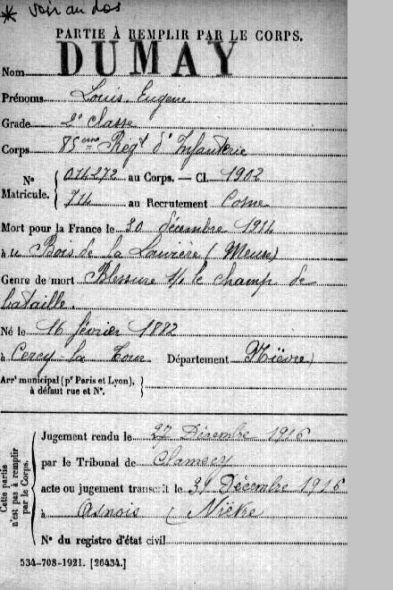 * voir au dos
PARTIE À REMPLIR PAR LE CORPS.
DUMAY
Nom
Prénoms Louis Eugène
Grade 2e Classe
Corps 85ème Régt d'Infanterie
No Matricule. { 014272 au Corps. — Cl. 1902
714 au Recrutement Cosne
Mort pour la France le 20 décembre 1914
à u Bois de la Louvière (Meuse)
Genre de mort Blessure s/ le champ de
bataille.
Né le 16 février 1882
à Cercy la Tour Département Nièvre
Arrt municipal (pr Paris et Lyon), à défaut rue et No. }
Cette partie n'est pas à remplir par le Corps.
Jugement rendu le 27 Décembre 1916
par le Tribunal de Clamecy
acte ou jugement transcrit le 31 Décembre 1916
à Asnois (Nièvre
No du registre d'état civil
534-708-1921. [26434.]